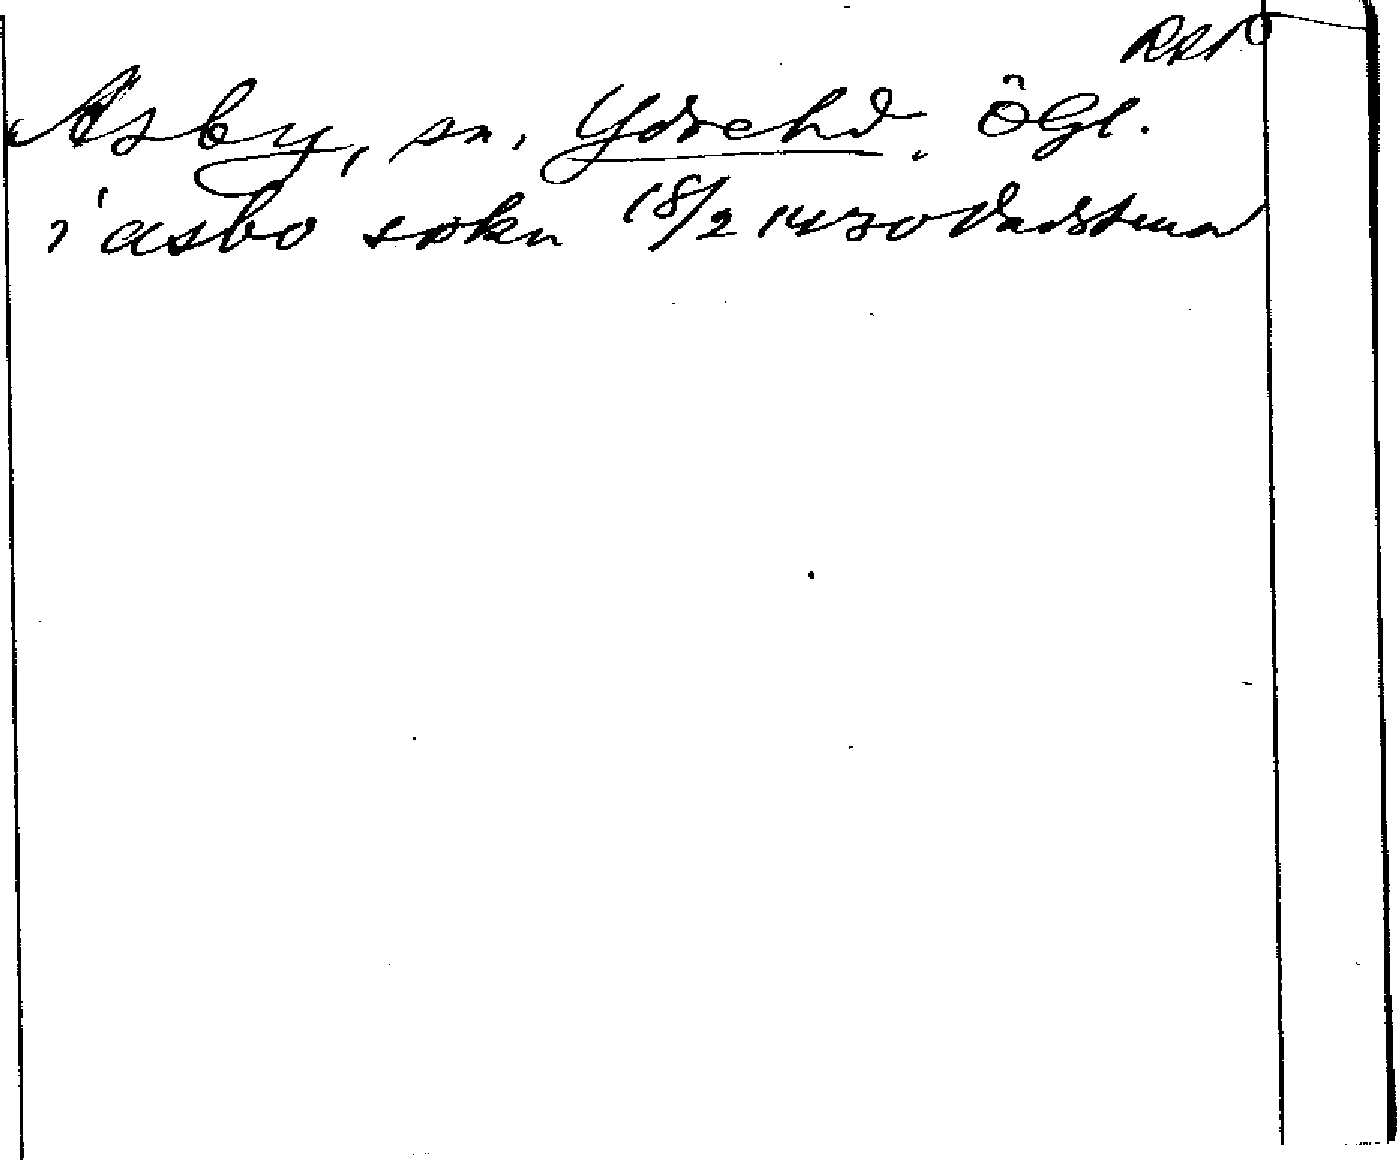 RAP
Asby, sn. Ydrehd. ÖGl.
i asbo sokn 18/2 1430 Vadstena